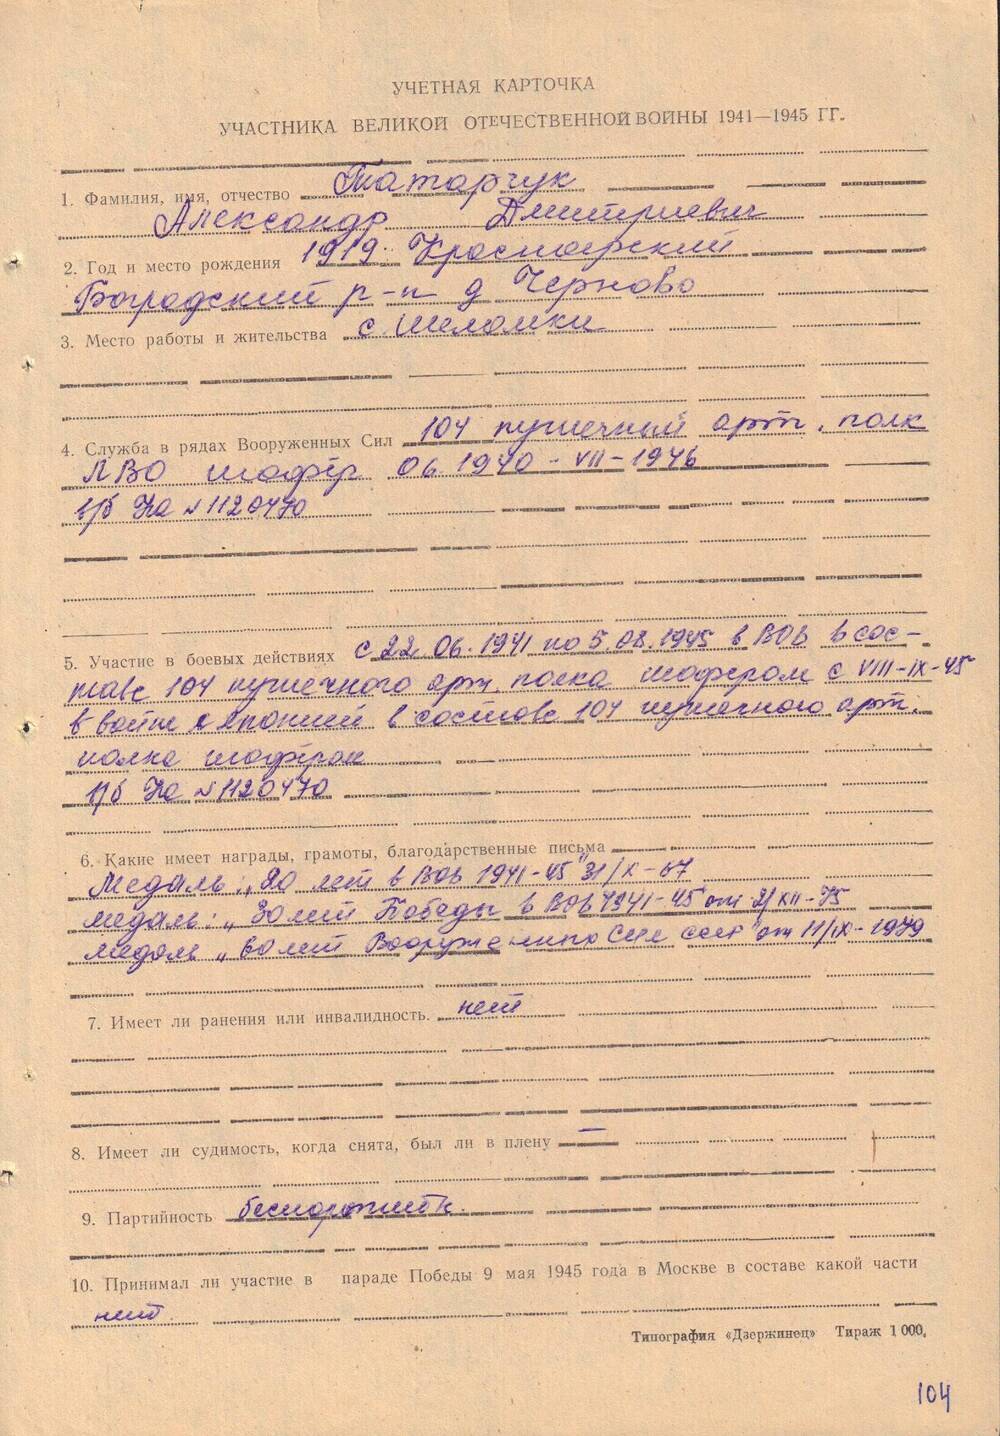 УЧЕТНАЯ КАРТОЧКА
УЧАСТНИКА ВЕЛИКОЙ ОТЕЧЕСТВЕННОЙ ВОЙНЫ 1941—1945 ГГ.
1. Фамилия, имя, отчество Татарчук
Александр Дмитриевич
2. Год и место рождения 1919. Красноярский
Боградский р-н д Черново
3. Место работы и жительства с. Шеломки
4. Служба в рядах Вооруженных Сил 104 пушечный арт. полк
ЛВО шофёр 06.1940-VII-1946
в/б На №1120470
5. Участие в боевых действиях с 22.06.1941 по 5.08.1945 в ВОВ в сос-
таве 104 пушечного арт. полка шофером с VIII-IX-45
в войне с Японией в составе 104 пушечного арт.
полка шофёром
в/б На №1120470
6. Какие имеет награды, грамоты, благодарственные письма
Медаль: „20 лет в ВОВ 1941-45" 31/X-67
медаль: „30 лет Победы в ВОВ 1941-45" от 2/XII-75
медаль „60 лет Вооруженных Сил СССР" от 11/IX-1979
7. Имеет ли ранения или инвалидность. нет
8. Имеет ли судимость, когда снята, был ли в плену —
9. Партийность беспартийный
10. Принимал ли участие в параде Победы 9 мая 1945 года в Москве в составе какой части
нет.
Типография «Дзержинец» Тираж 1 000.
104